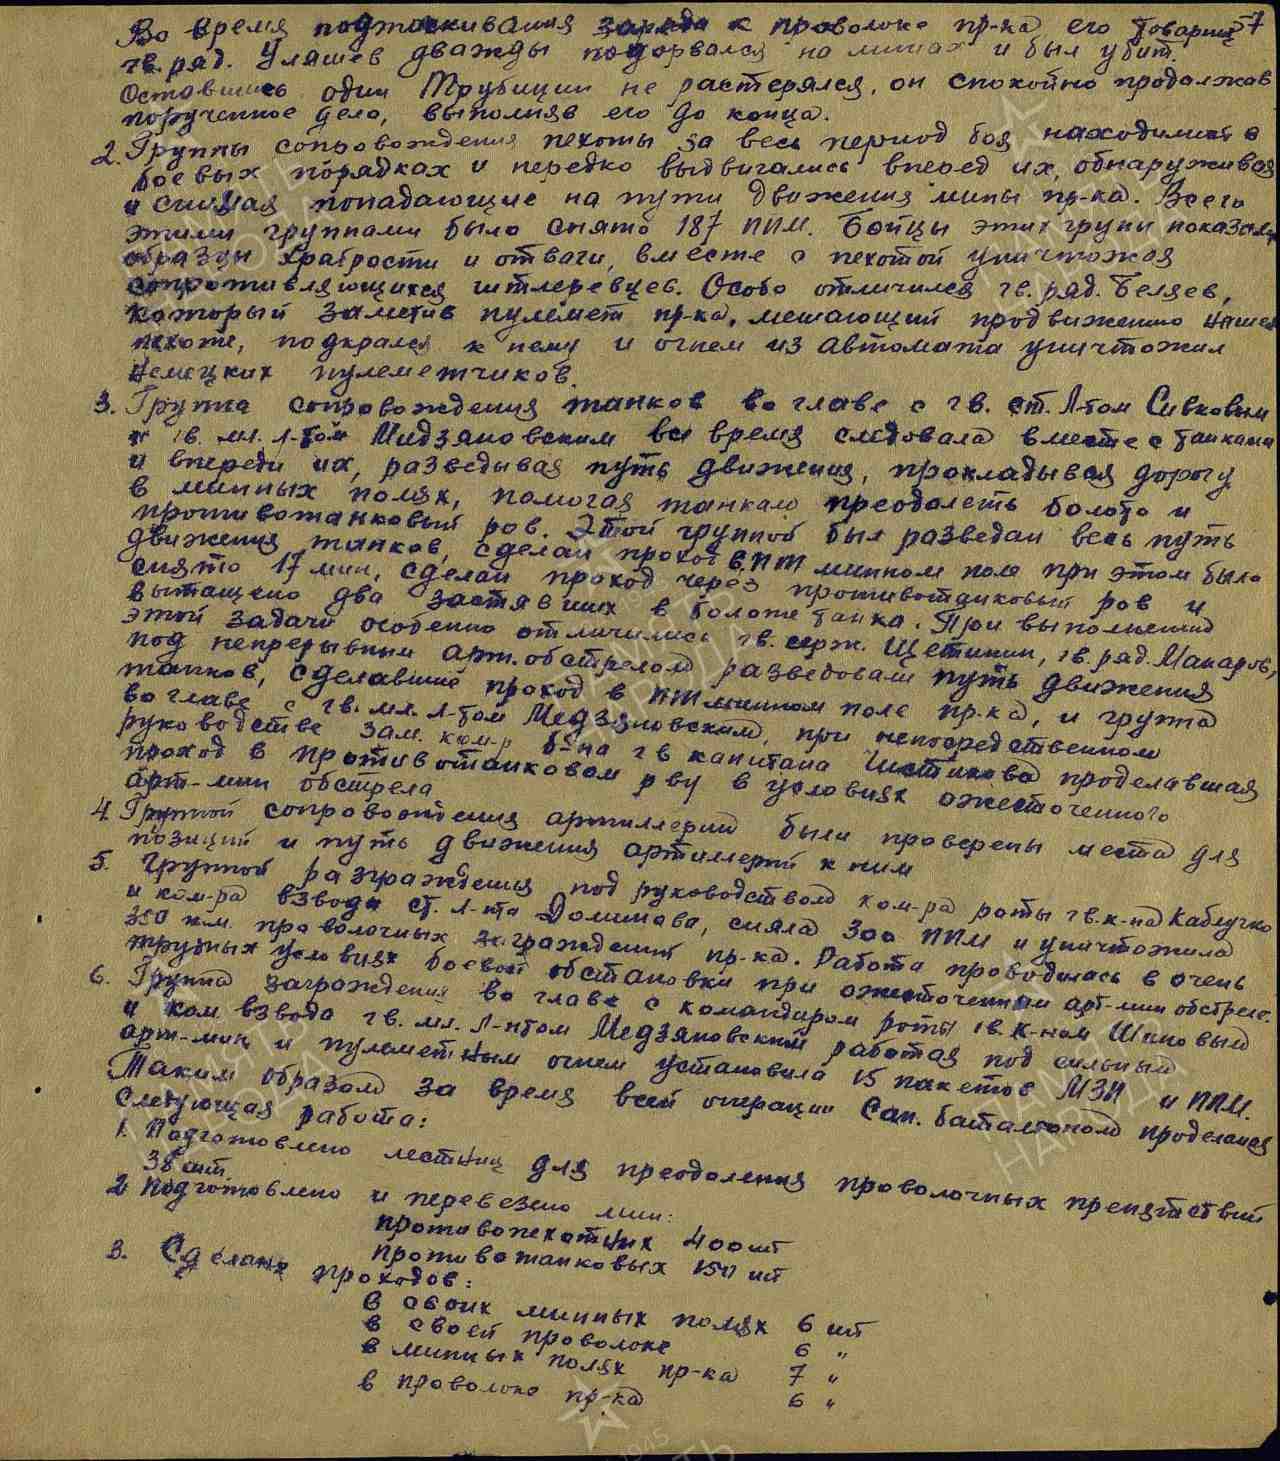 7
Во время подтаскивания заряда к проволоке пр-ка, его товарищ
гв. ряд. Уляшев дважды подорвался на минах и был убит.
Оставшись один Трубицин не растерялся, он спокойно продолжав
порученное дело, выполняв его до конца.
2. Группы сопровождения пехоты за весь период боя находились в
боевых порядках и нередко выдвигались вперед их, обнаруживая
и снимая попадающие на пути движения мины пр-ка. Всего
этими группами было снято 187 ППМ. Бойцы этих групп показали
образцы храбрости и отваги, вместе с пехотой уничтожая
сопротивляющихся гитлеровцев. Особо отличился гв. ряд. Беляев,
который заметив пулемет пр-ка, мешающий продвижению нашей
пехоте, подкрался к нему и огнем из автомата уничтожил
немецких пулеметчиков.
3. Группа сопровождения танков во главе с гв. ст. Л-том Сивковым
и гв. мл. л-том Мидзяновским все время следовала вместе с танками
и впереди их, разведывая путь движения, прокладывая дорогу
в минных полях, помогая танкам преодолеть болото и
противотанковый ров. Этой группой был разведан весь путь
движения танков, сделан проход в ПТ минном поле при этом было
снято 17 мин, сделан проход через противотанковый ров и
вытащено два застявших в болоте танка. При выполнении
этой задачи особенно отличились гв. серж. Щетинин, гв. ряд. Макаров,
под непрерывным арт. обстрелом разведовали путь движения
танков, сделавший проход в ПТ минном поле пр-ка, и группа
во главе с гв. мл. л-том Медзяновским, при непосредственном
руководстве зам. ком-р б-на гв капитана проделавшая
проход в противотанковом рву в условиях ожесточенного
арт-мин обстрела
4. Группой сопровождения артиллерии были проверены места для
позиций и путь движения артиллерии к ним
5. Группой разграждения под руководством ком-ра роты гв. к-на Каблучко
и ком-ра взвода ст. л-нта Долинава, сняла 300 ППМ и уничтожила
350 п/м. проволочных заграждений пр-ка. Работа проводилась в очень
трудных условиях боевой обстановки при ожесточенном арт-мин обстреле.
6. Группа заграждения во главе с командиром роты гв. к-ном Шиловым
и ком. взвода гв. мл. л-нтом Медзяновский работая под сильным
арт-мин и пулеметным огнем установила 15 пакетов МЗП и ППМ.
Таким образом за время всей операции Сап. батальоном проделана
следующая работа:
1. Подготовлено лестниц для преодоления проволочных препятствий
38 шт
2. Подготовлено и перевезено мин:
противопехотных 400 шт
противотанковых 150 шт
3. Сделано проходов:
в своих минных полях 6 шт
в своей проволоке 6 "
в минных полях пр-ка 7 "
в проволоке пр-ка 6 "